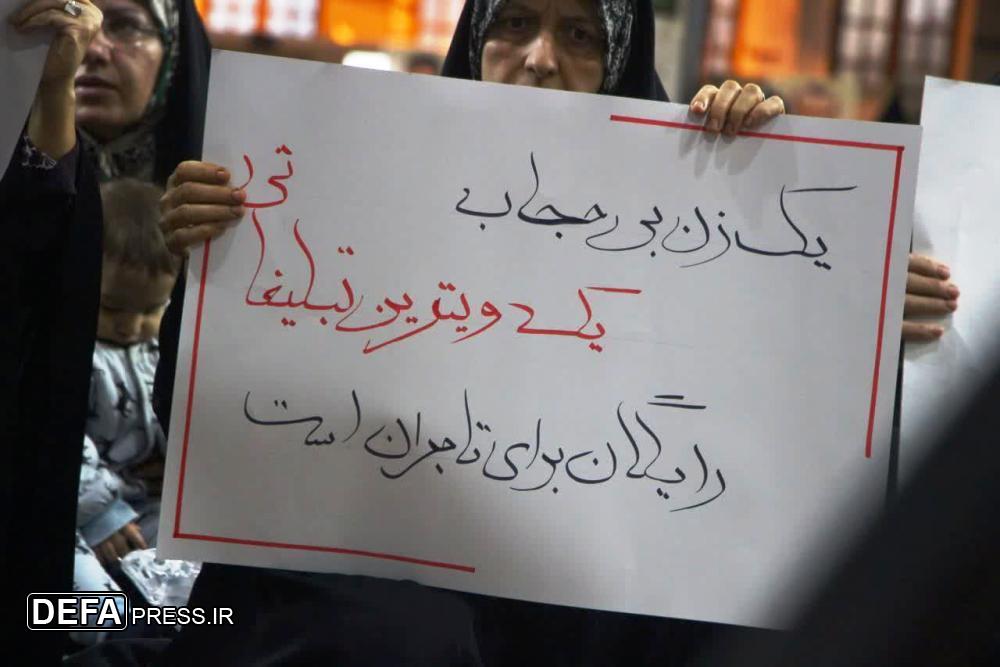 یک زن بی حجاب
یک ویترین تبلیغاتی
رایگان برای تاجران است
DEFAPRESS.IR